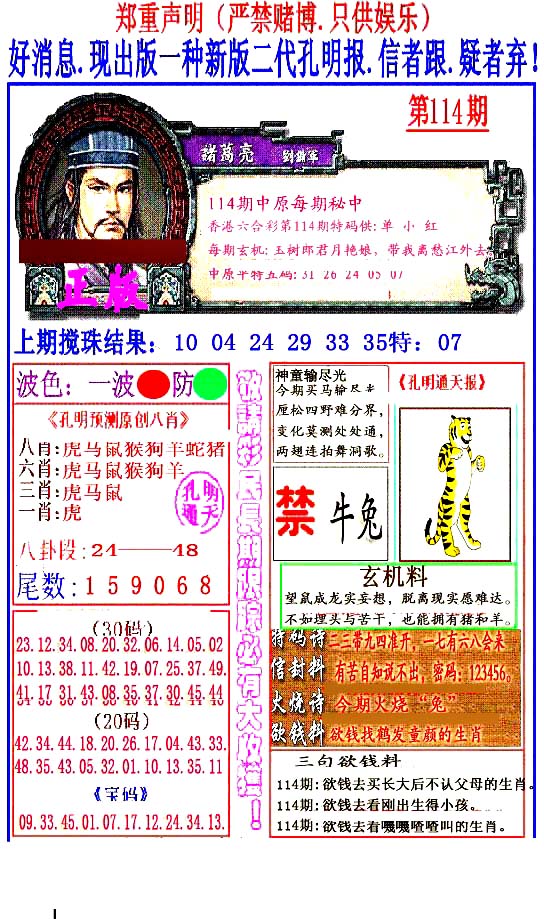 郑重声明（严禁赌博.只供娱乐）
好消息.现出版一种新版二代孔明报.信者跟.疑者弃!
第114期
諸葛亮 劉備軍
114期中原每期秘中
香港六合彩第114期特码供: 单 小 红
每期玄机: 玉树郎君月艳娘，带我离愁江外去。
中原平特五码: 31 26 24 05 07
正版
上期搅珠结果: 10 04 24 29 33 35特: 07
波色: 一波 防
《孔明预测原创八肖》
八肖:虎马鼠猴狗羊蛇猪
六肖:虎马鼠猴狗羊
三肖:虎马鼠
一肖:虎
孔明
通天
八卦段:24———48
尾数:159068
(30码)
23.12.34.08.20.32.06.14.05.02
10.13.38.11.42.19.07.25.37.49
41.17.31.43.08.35.37.30.45.44
(20码)
42.34.44.18.20.26.17.04.43.33.
48.35.43.05.32.01.10.13.35.11
《宝码》
09.33.45.01.07.17.12.24.34.13.
敬請彩民長期跟踪必有大收獲！
神童输尽光
今期买马输尽光
厘松四野难分界，
变化莫测处处通，
两翅连拍舞洞歌。
《孔明通天报》
禁 牛兔
玄机料
望鼠成龙实妄想，脱离现实愿难达。
不如埋头与苦干，也能拥有猪和羊。
特码诗 二三带九四准开，一七有六八会来
信封料 有苦自知说不出，密码: 123456。
火烧诗 今期火烧“兔”
欲钱料 欲钱找鹤发童颜的生肖
三句欲钱料
114期: 欲钱去买长大后不认父母的生肖。
114期: 欲钱去看刚出生得小孩。
114期: 欲钱去看嘰嘰喳喳叫的生肖.